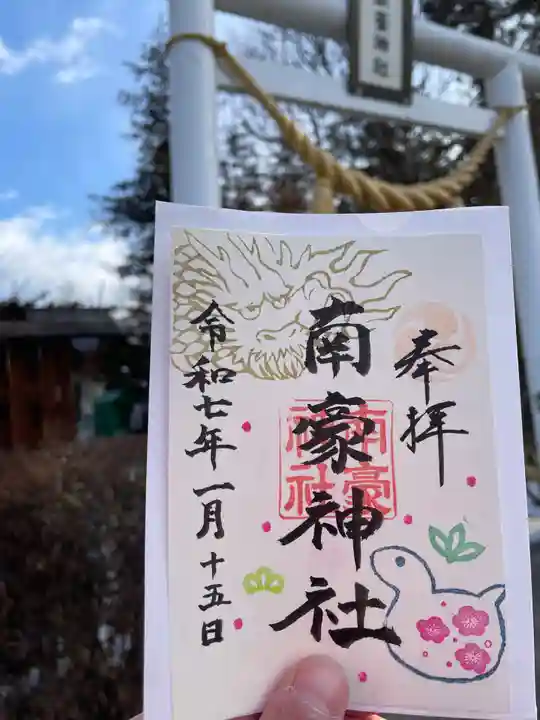 奉拝
南豪神社
南豪
神社
令和七年一月十五日